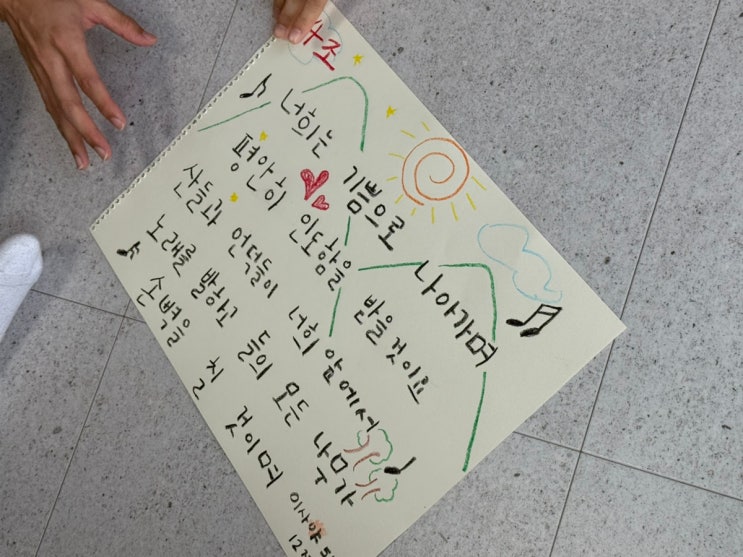 4조
너희는 기쁨으로 나아가며
평안히 인도함을 받을 것이요
산들과 언덕들이 너희 앞에서
노래를 발하고 들의 모든 나무가
손벽을 칠 것이며
이사야 5
12